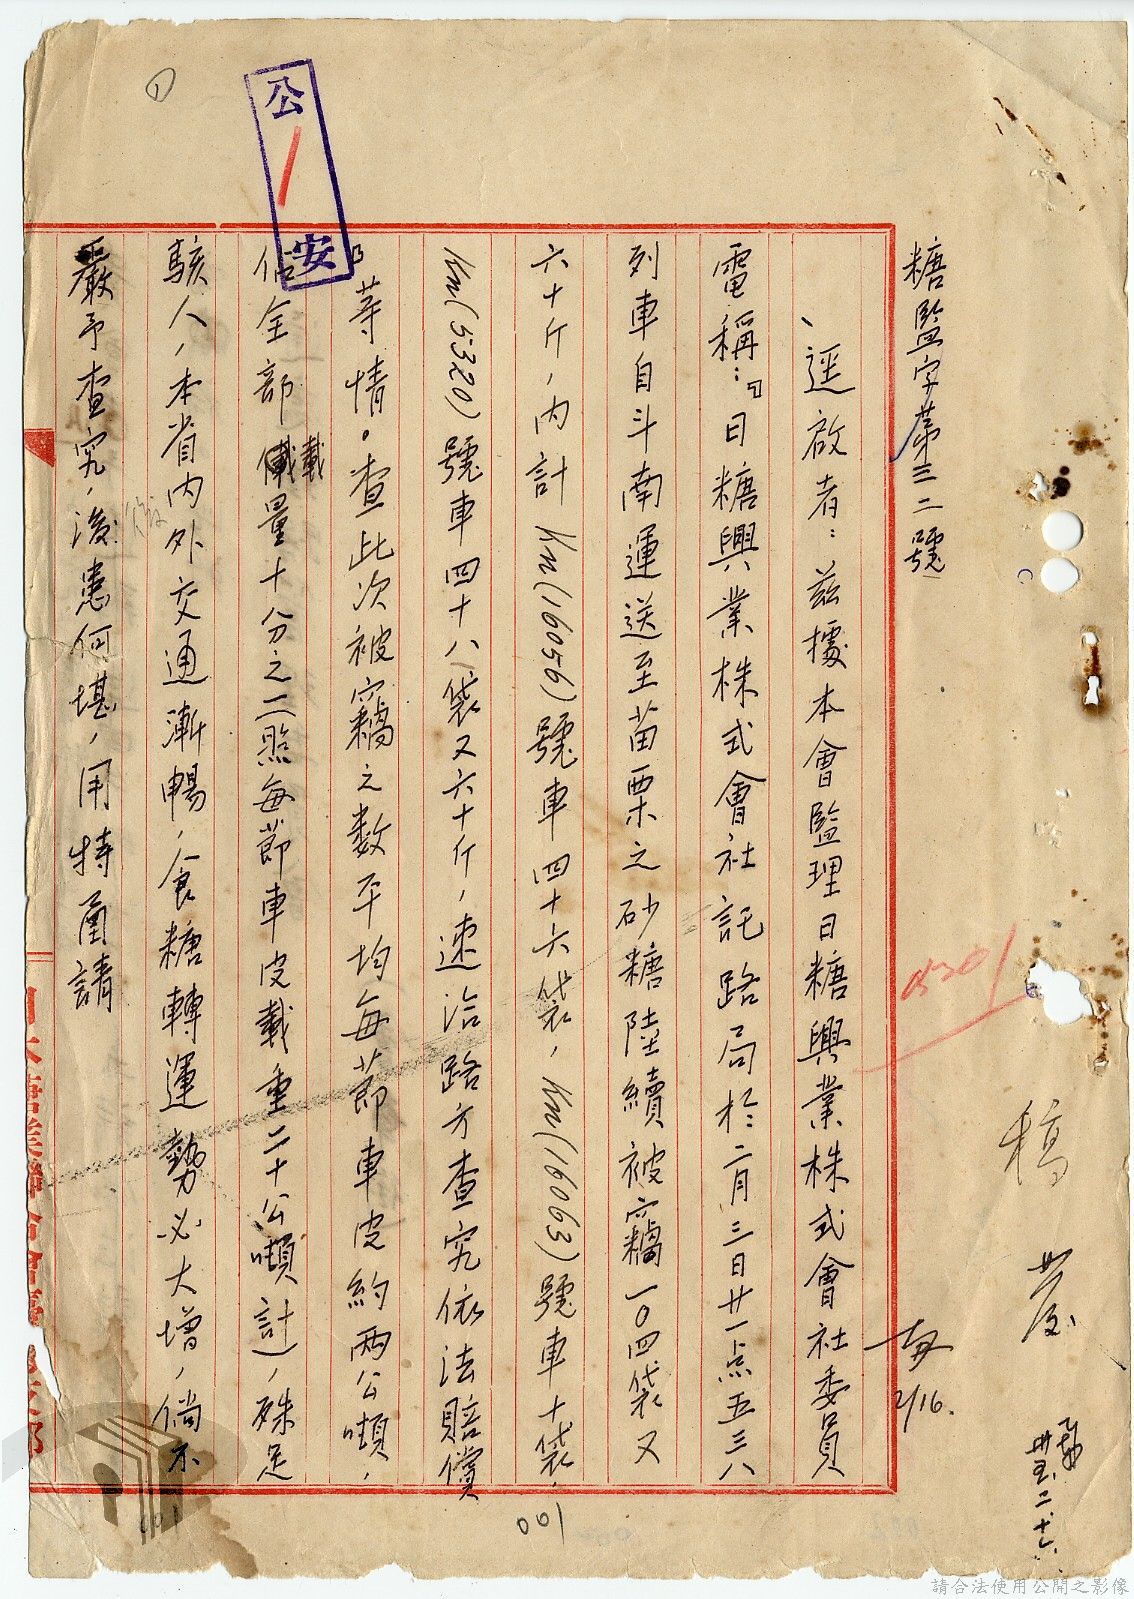 糖監字第三二號
逕啟者：茲據本會監理日糖興業株式會社委員
電稱：『日糖興業株式會社託路局於二月三日廿一点五三八
列車自斗南運送至苗栗之砂糖陸續被竊一〇四袋又
六十斤，內計Kn(16056)號車四十六袋，Kn(16063)號車十袋，
Kn(5320)號車四十八袋又六十斤，速洽路方查究依法賠償
』等情。查此次被竊之数平均每節車皮約兩公噸，
佔全部載量十分之二點每節車皮載重二十公噸計，殊足
駭人，本省內外交通漸暢，食糖轉運勢必大增，倘不
嚴予查究，後患何堪，用特函請
公
安
稿
2/16.
卅五、二、十六
001
1
請合法使用公開之影像